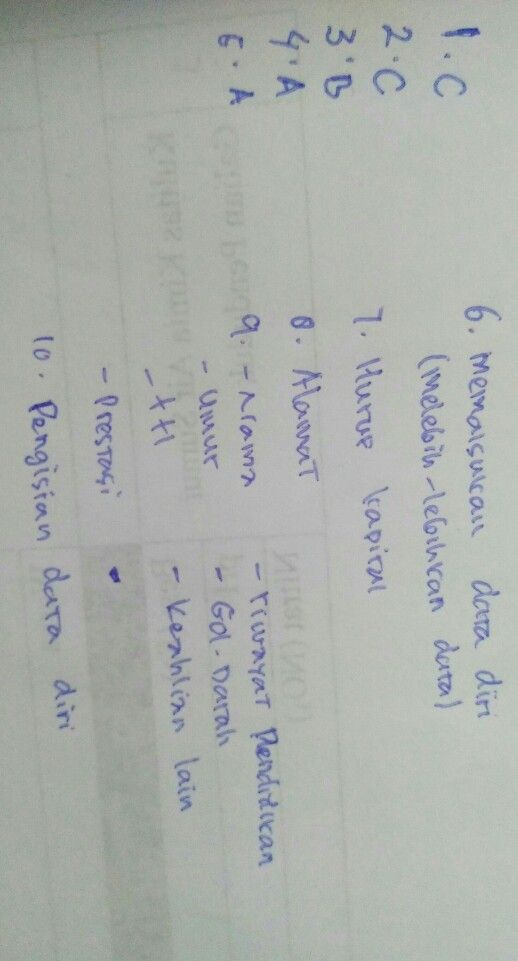 1. C
2. C
3. B
4. A
5. A
6. Memalsukan data diri
(melebih-lebihkan data)
7. Huruf kapital
8. Alamat
9. - Nama
- Umur
- ttl
- Prestasi
- riwayat Pendidikan
- Gol. Darah
- Keahlian lain
10. Pengisian data diri